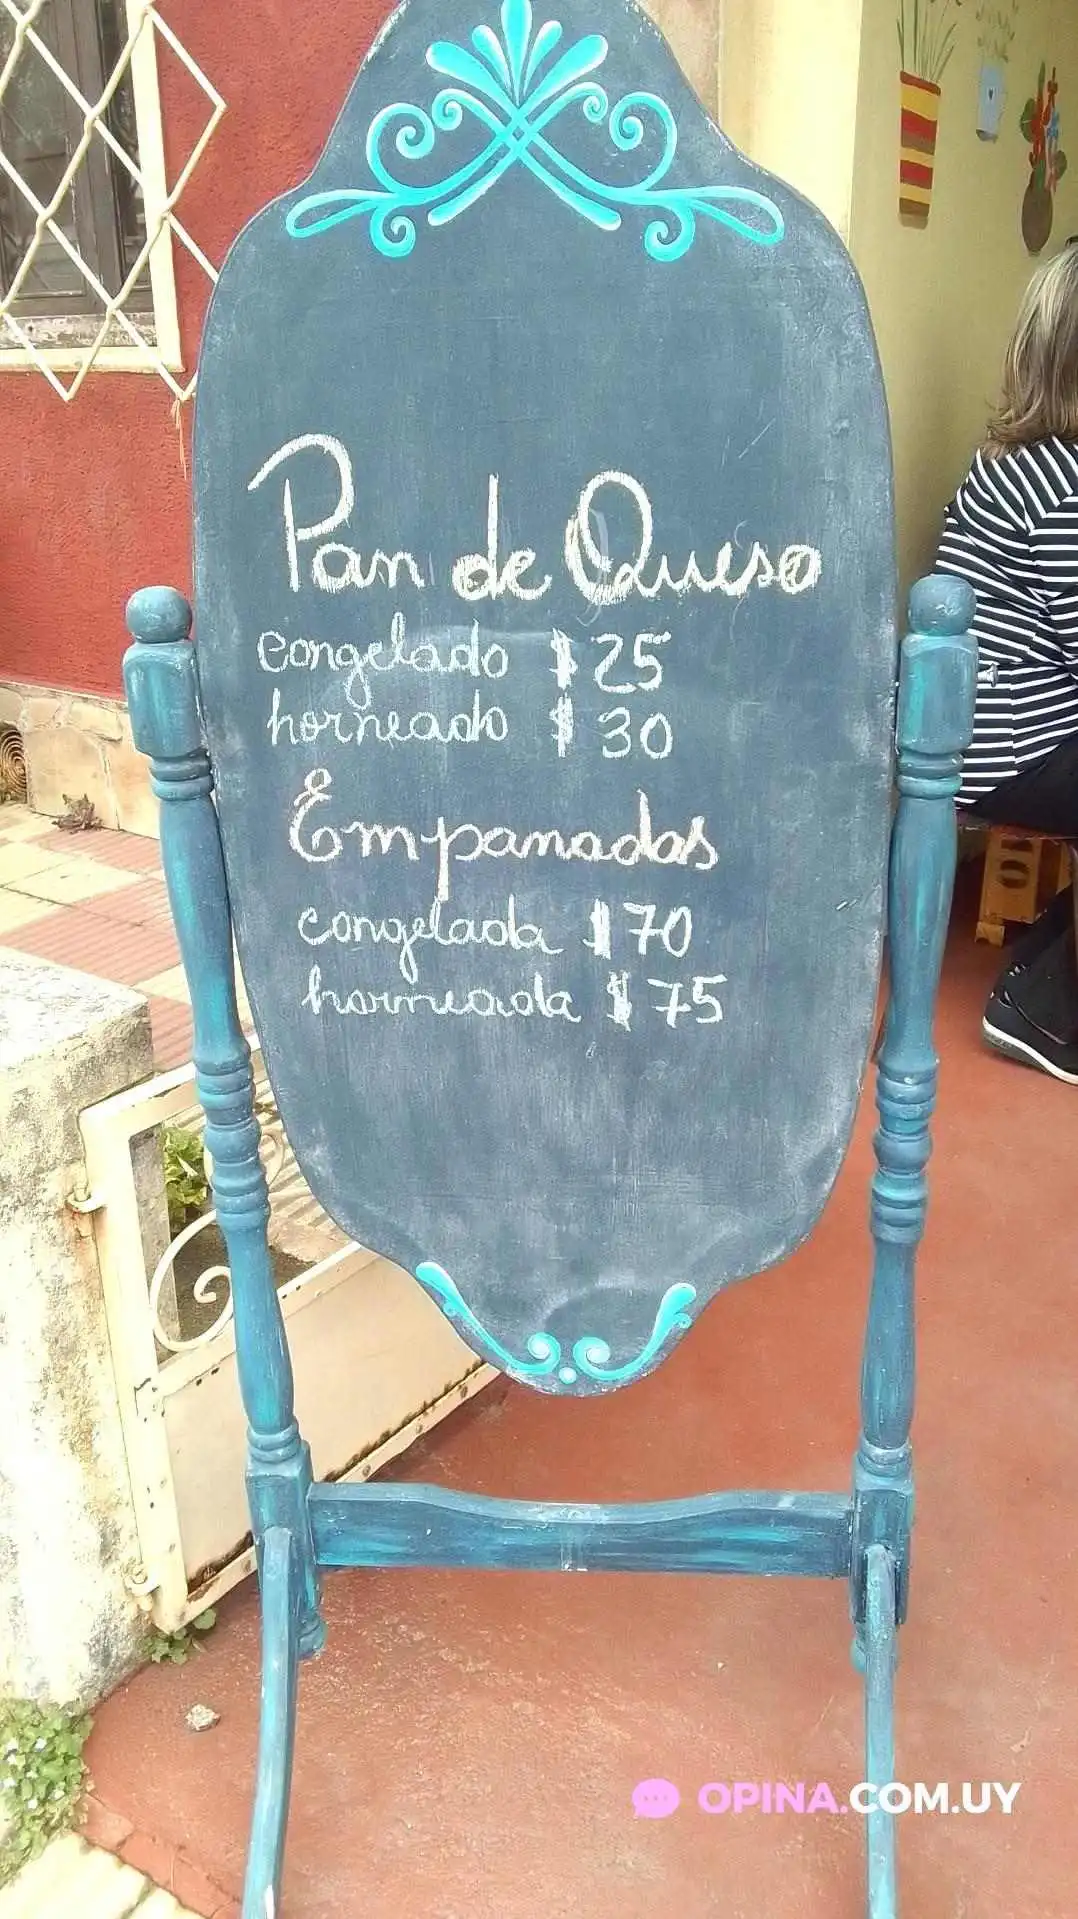 Pan de Queso
congelado $25
horneado $30
Empanadas
congelada $70
horneada $75
OPINA.COM.UY